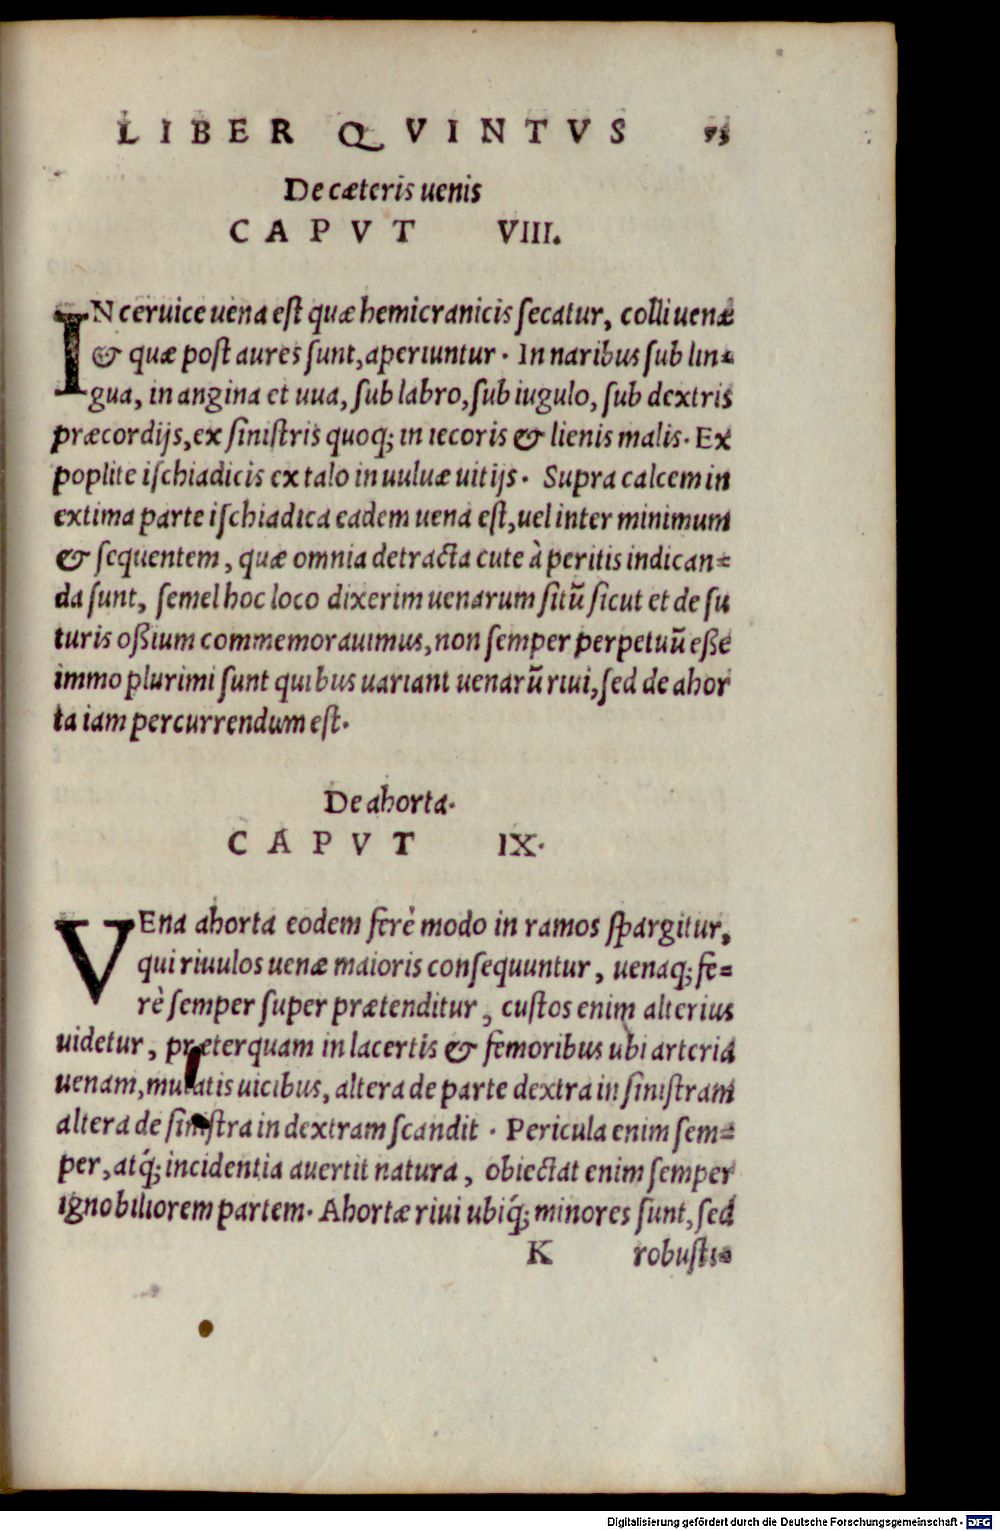 LIBER QVINTVS 73
De cæteris uenis
CAPVT VIII.
IN ceruice uena est quæ hemicranicis secatur, colli uenæ
& quæ post aures sunt, aperiuntur. In naribus sub lin-
gua, in angina et uua, sub labro, sub iugulo, sub dextris
præcordijs, ex sinistris quoq; in iecoris & lienis malis. Ex
poplite ischiadicis ex talo in uuluæ uitijs. Supra calcem in
extima parte ischiadica eadem uena est, uel inter minimum
& sequentem, quæ omnia detracta cute à peritis indican-
da sunt, semel hoc loco dixerim uenarum sitũ sicut et de su
turis oßium commemorauimus, non semper perpetuũ eße
immo plurimi sunt quibus uariant uenarũ riui, sed de ahor
ta iam percurrendum est.
De ahorta.
CAPVT IX.
VEna ahorta eodem ferè modo in ramos spargitur,
qui riuulos uenæ maioris consequuntur, uenaq; fe-
rè semper super prætenditur, custos enim alterius
uidetur, præterquam in lacertis & femoribus ubi arteria
uenam, mutatis uicibus, altera de parte dextra in sinistram
altera de sinistra in dextram scandit. Pericula enim sem-
per, atq́; incidentia auertit natura, obiectat enim semper
ignobiliorem partem. Ahortæ riui ubiq́; minores sunt, sed
K robusti-
Digitalisierung gefördert durch die Deutsche Forschungsgemeinschaft - DFG